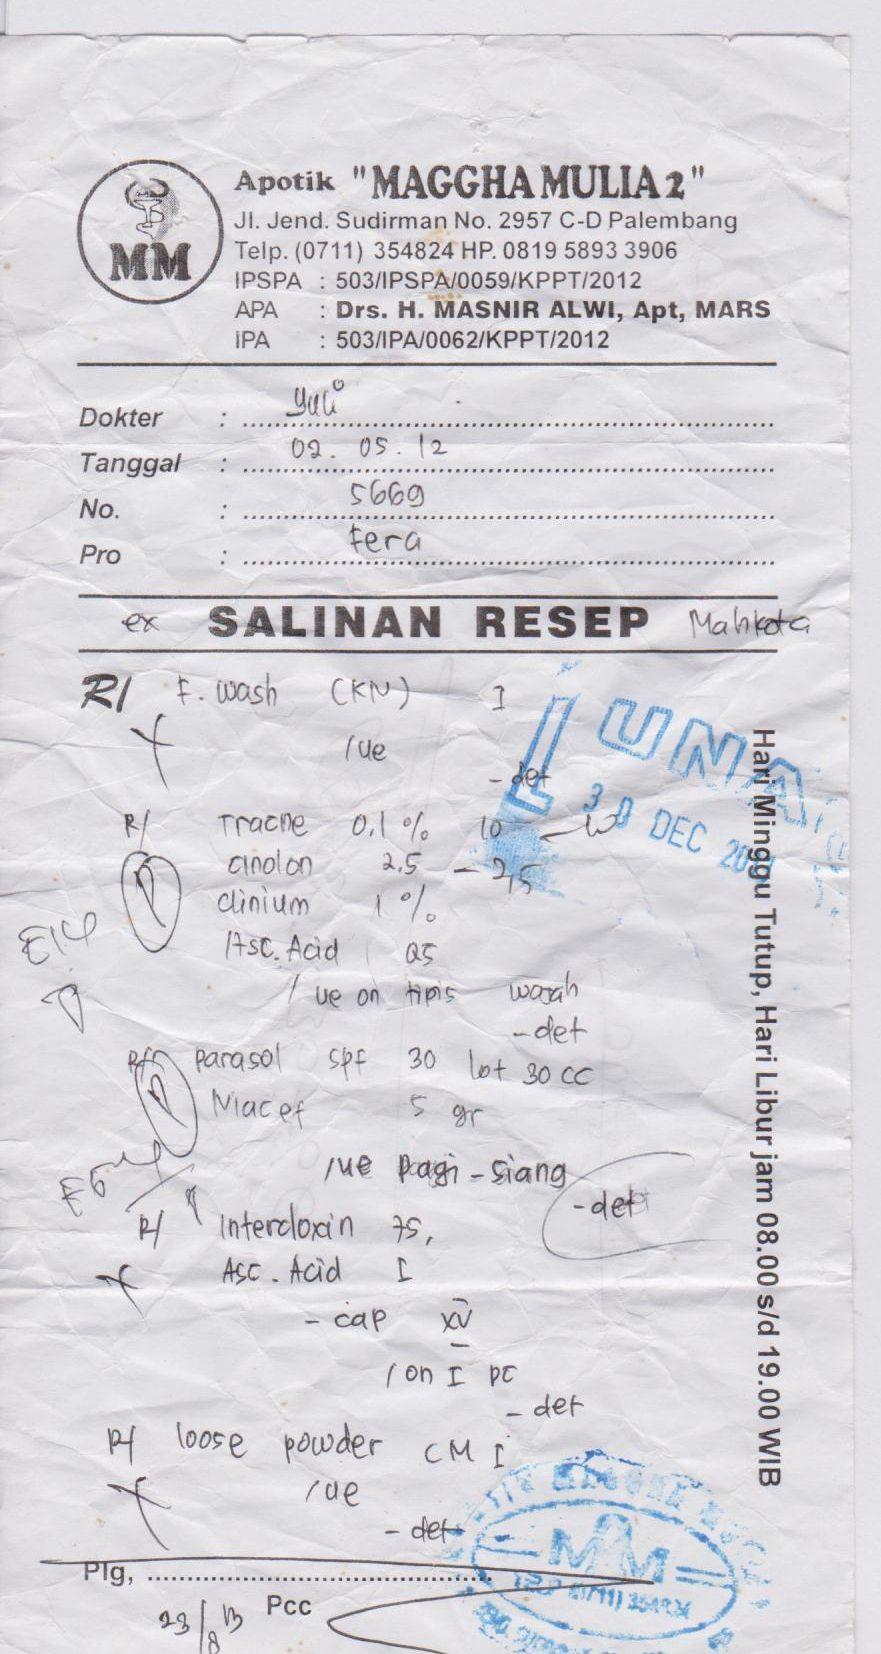 MM
Apotik "MAGGHA MULIA 2"
Jl. Jend. Sudirman No. 2957 C-D Palembang
Telp. (0711) 354824 HP. 0819 5893 3906
IPSPA : 503/IPSPA/0059/KPPT/2012
APA : Drs. H. MASNIR ALWI, Apt, MARS
IPA : 503/IPA/0062/KPPT/2012
Dokter : Yuli
Tanggal : 02.05.12
No. : 5669
Pro : Fera
ex SALINAN RESEP Mahkota
R/ F. wash (KN) I
/ue
- det
LUNAS
30 DEC
R/ Tracne 0,1% 10
cinolon 2,5 -
clinium 1%
Asc. Acid 25
E14
/ue on tipis wajah
- det
R/ parasol spf 30 lot 30 cc
Niacef 5 gr
/ue pagi - siang
- det
R/ Interdoxin 75,
Asc. Acid I
- cap XV
/on I pc
- det
R/ loose powder CM I
/ue
- det
MM
Plg, ..........
23/8 13 Pcc
Hari Minggu Tutup, Hari Libur jam 08.00 s/d 19.00 WIB